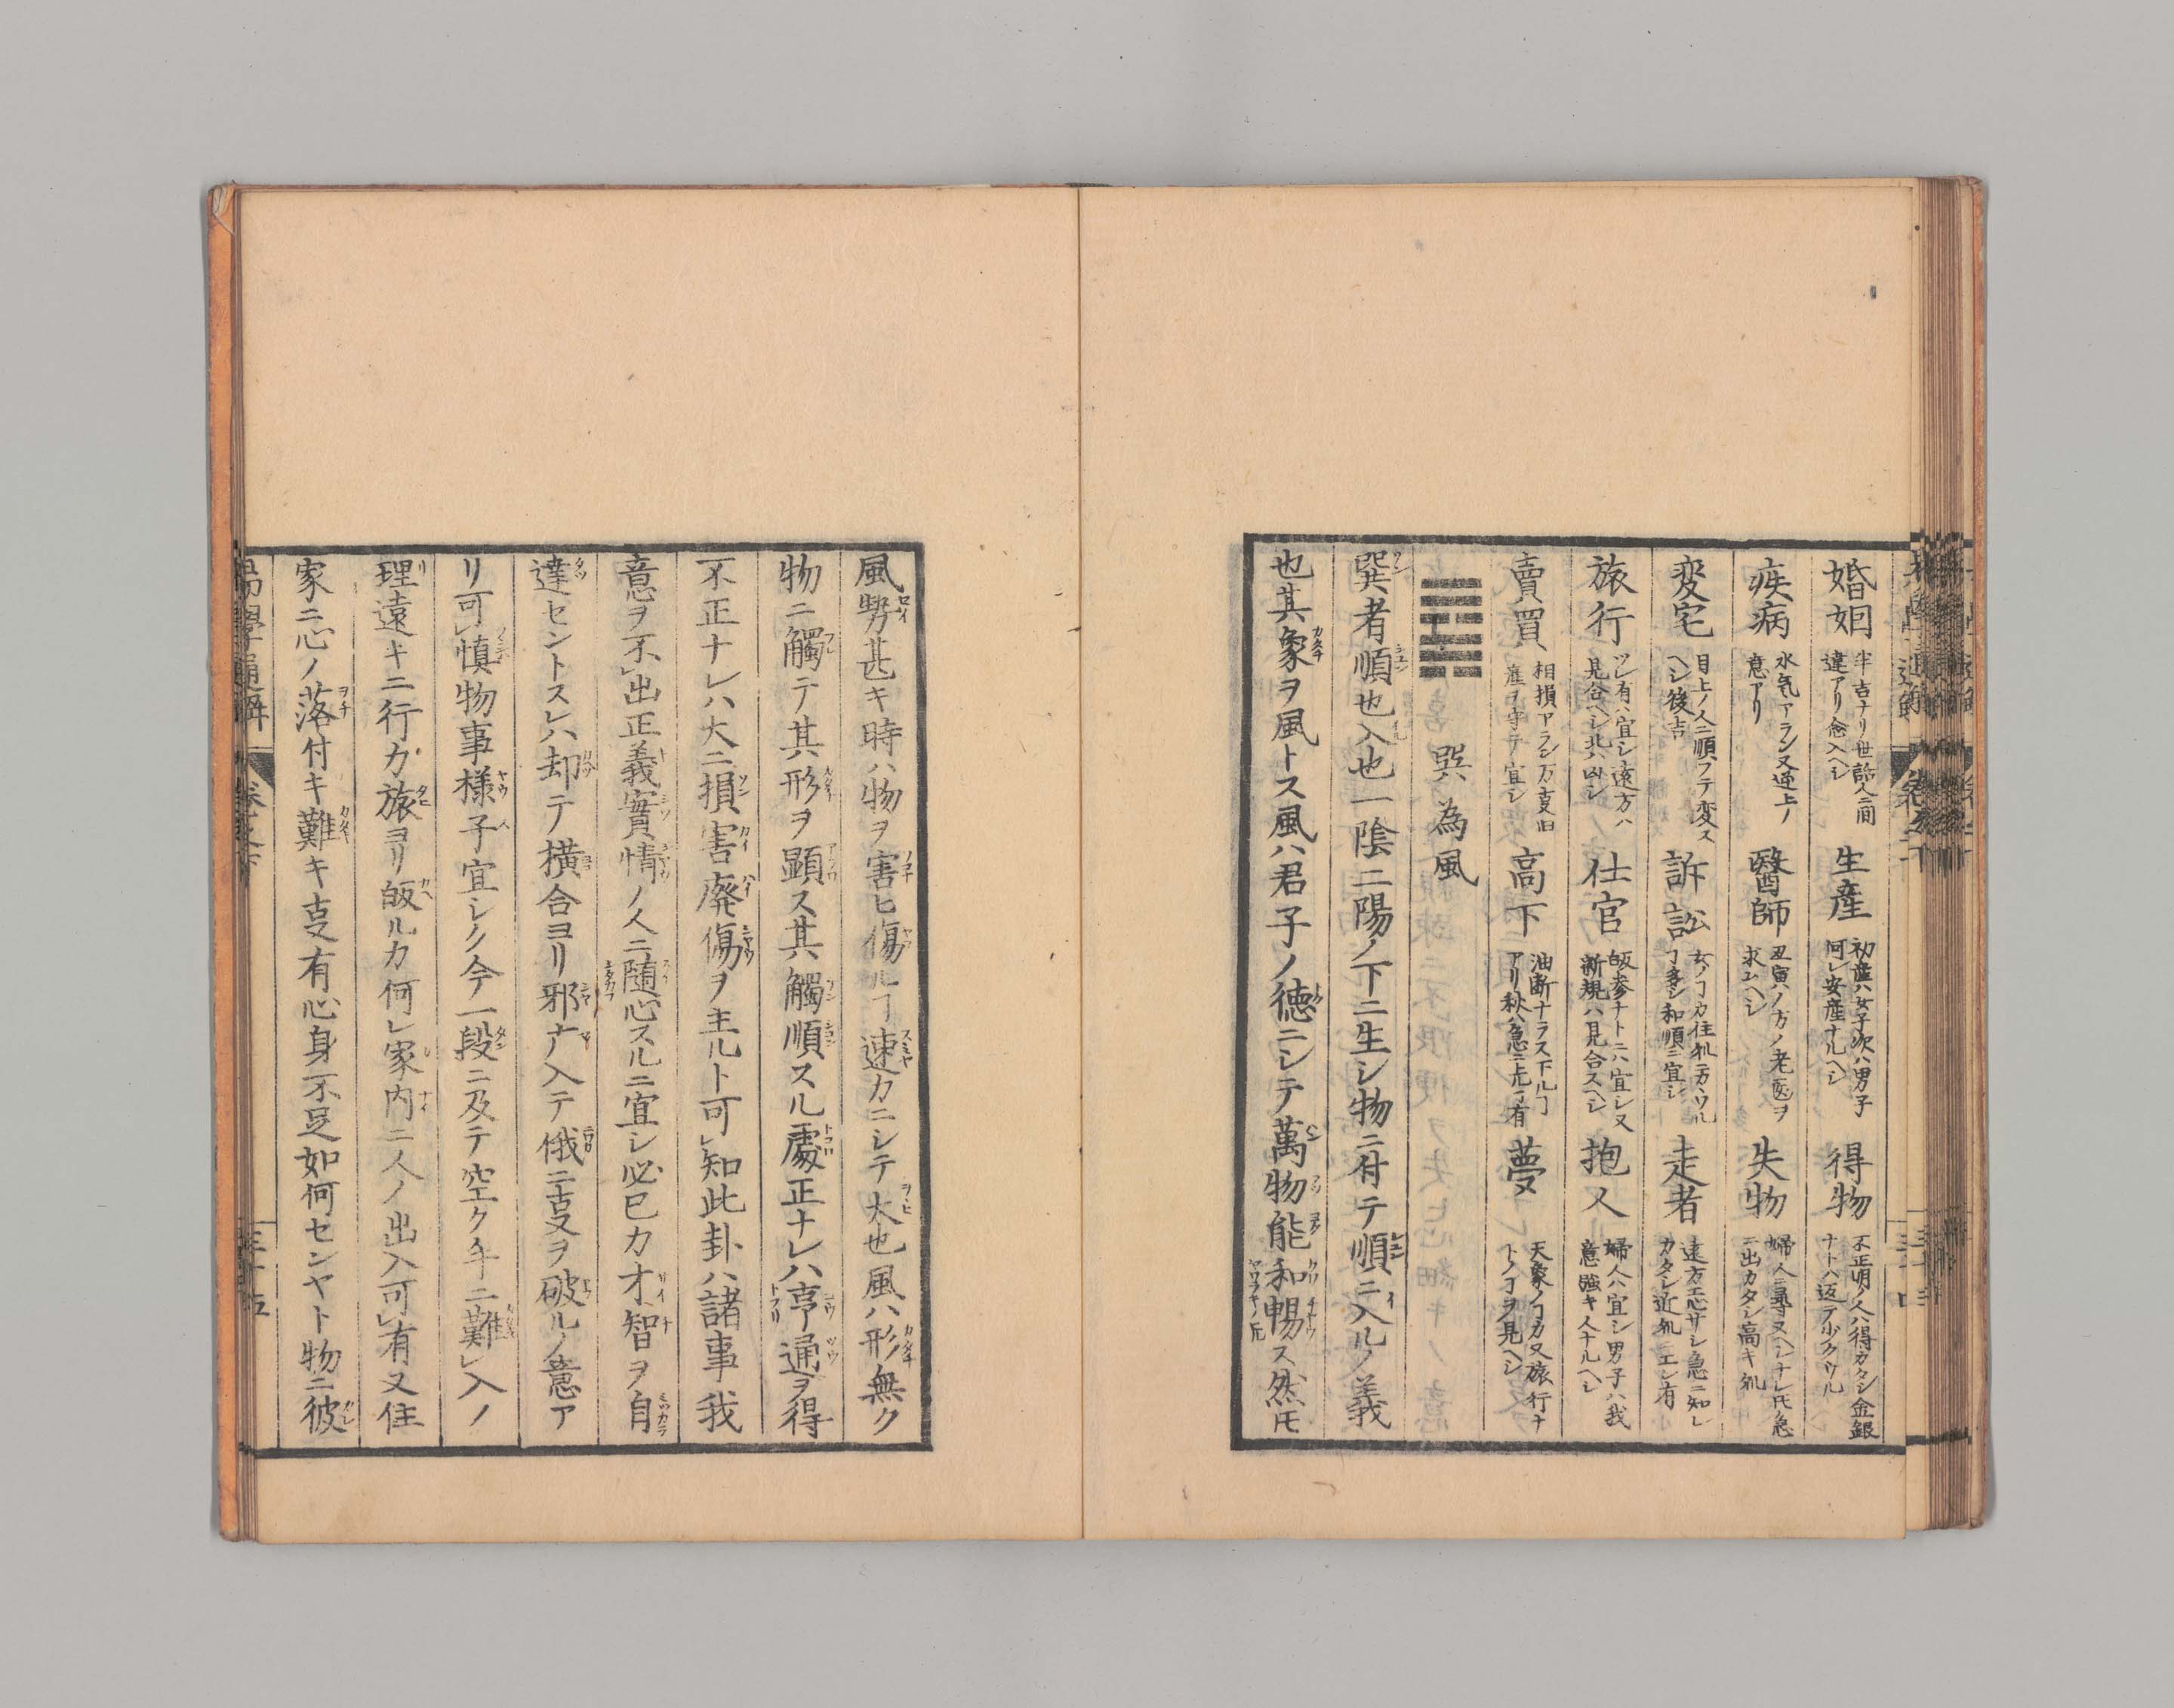 婚姻 半吉ナリ世話人ニ間違アリ念入ヘシ 生産 初産ハ女子次ハ男子何レ安産ナルヘシ 得物 不正明ノ人ハ得カタシ金銀ナトハ返テ少クウル
疾病 水気アラン又逆上ノ意アリ 醫師 丑寅ノ方ノ老医ヲ求ムヘシ 失物 婦人ニ尋ヌヘシナレ𪜈急ニ出カタシ高キ処
変宅 目上ノ人ニ順フテ変スヘシ後吉 訴訟 女ノヿカ住処ノヿ多シ和順ニ宜シ 走者 遠方ニ急ニ知レカタシ近処エン有
旅行 ツレ有ハ宜シ遠方ハ見合ヘシ北ハ凶シ 仕官 皈参ナトニハ宜シ又新規ハ見合スヘシ 抱人 婦人ハ宜シ男子ハ我意強キ人ナルヘシ
賣買 相損アラン万叓旧産ヲ守テ宜シ 高下 油断ナラス下ルヿアリ秋ハ急ニ上ルヿ有 夢 天象ノヿカ又旅行ナトノヿヲ見ヘシ
䷸ 巽為風
巽者順也入也一陰二陽ノ下ニ生シ物ニ付テ順ニ入ルノ義
也其象ヲ風トス風ハ君子ノ徳ニシテ萬物能和暢ス然𪜈
風勢甚キ時ハ物ヲ害ヒ傷ルヿ速カニシテ大也風ハ形無ク
物ニ觸テ其形ヲ顕ス其觸順スル處正ナレハ亨通ヲ得
不正ナレハ大ニ損害廃傷ヲ主ルト可レ知此卦ハ諸事我
意ヲ不レ出正義實情ノ人ニ随心スルニ宜シ必已カ才智ヲ自
達セントスレハ却テ横合ヨリ邪ナ入テ俄ニ叓ヲ破ルノ意ア
リ可レ慎物事様子宜シク今一段ニ及テ空ク手ニ難レ入ノ
理遠キニ行カ旅ヨリ皈ルカ何レ家内ニ人ノ出入可レ有又住
家ニ心ノ落付キ難キ叓有心身不足如何センヤト物ニ彼
易學通解 巻之下 三十五